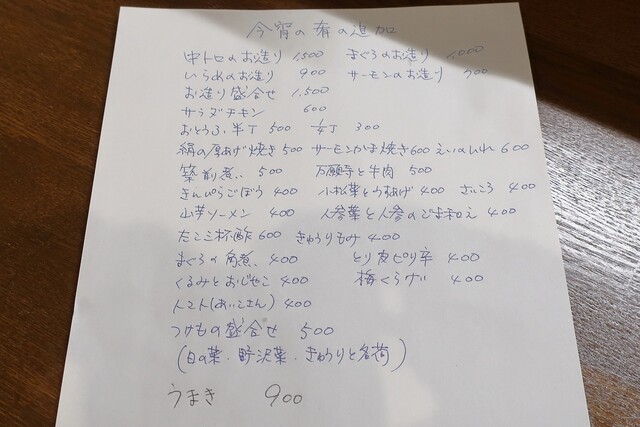 今宵の肴の追加
中トロのお造り 1,500 まぐろのお造り 1,000
いらめのお造り 900 サーモンのお造り 700
お造り盛合せ 1,500
サラダチキン 600
おとうふ半丁 500 1/4丁 300
絹の厚あげ焼き 500 サーモンかま焼き 600 えいのひれ 600
築前煮 500 万願寺と牛肉 500
きんぴらごぼう 400 小松菜とうすあげ 400 400
山芋ソーメン 400 人参葉と人参のごま和え 400
たこ三杯酢 600 きゅうりもみ 400
まぐろの角煮 400 とり皮ピリ辛 400
くるみとおじゃこ 400 梅くらげ 400
トマト(あいこさん) 400
つけもの盛合せ 500
(日の菜・野沢菜・きゅうりと名荷)
うまき 900